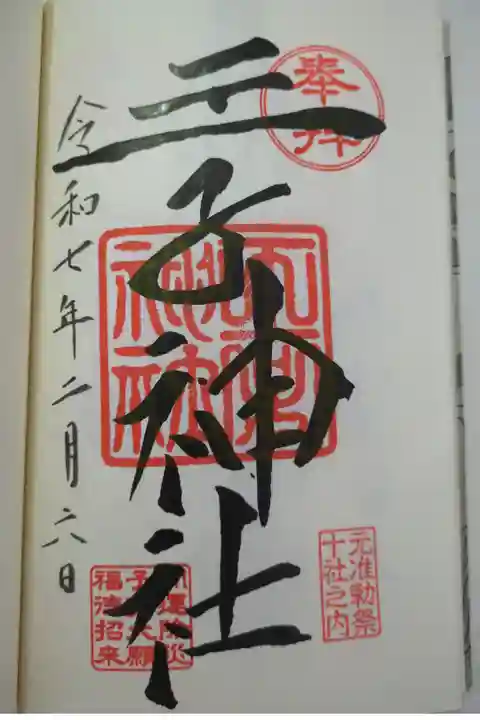 奉拝
王子神社
王子神社
元准勅祭
十社之内
開運除災
子育大願
福徳招来
令和七年二月六日